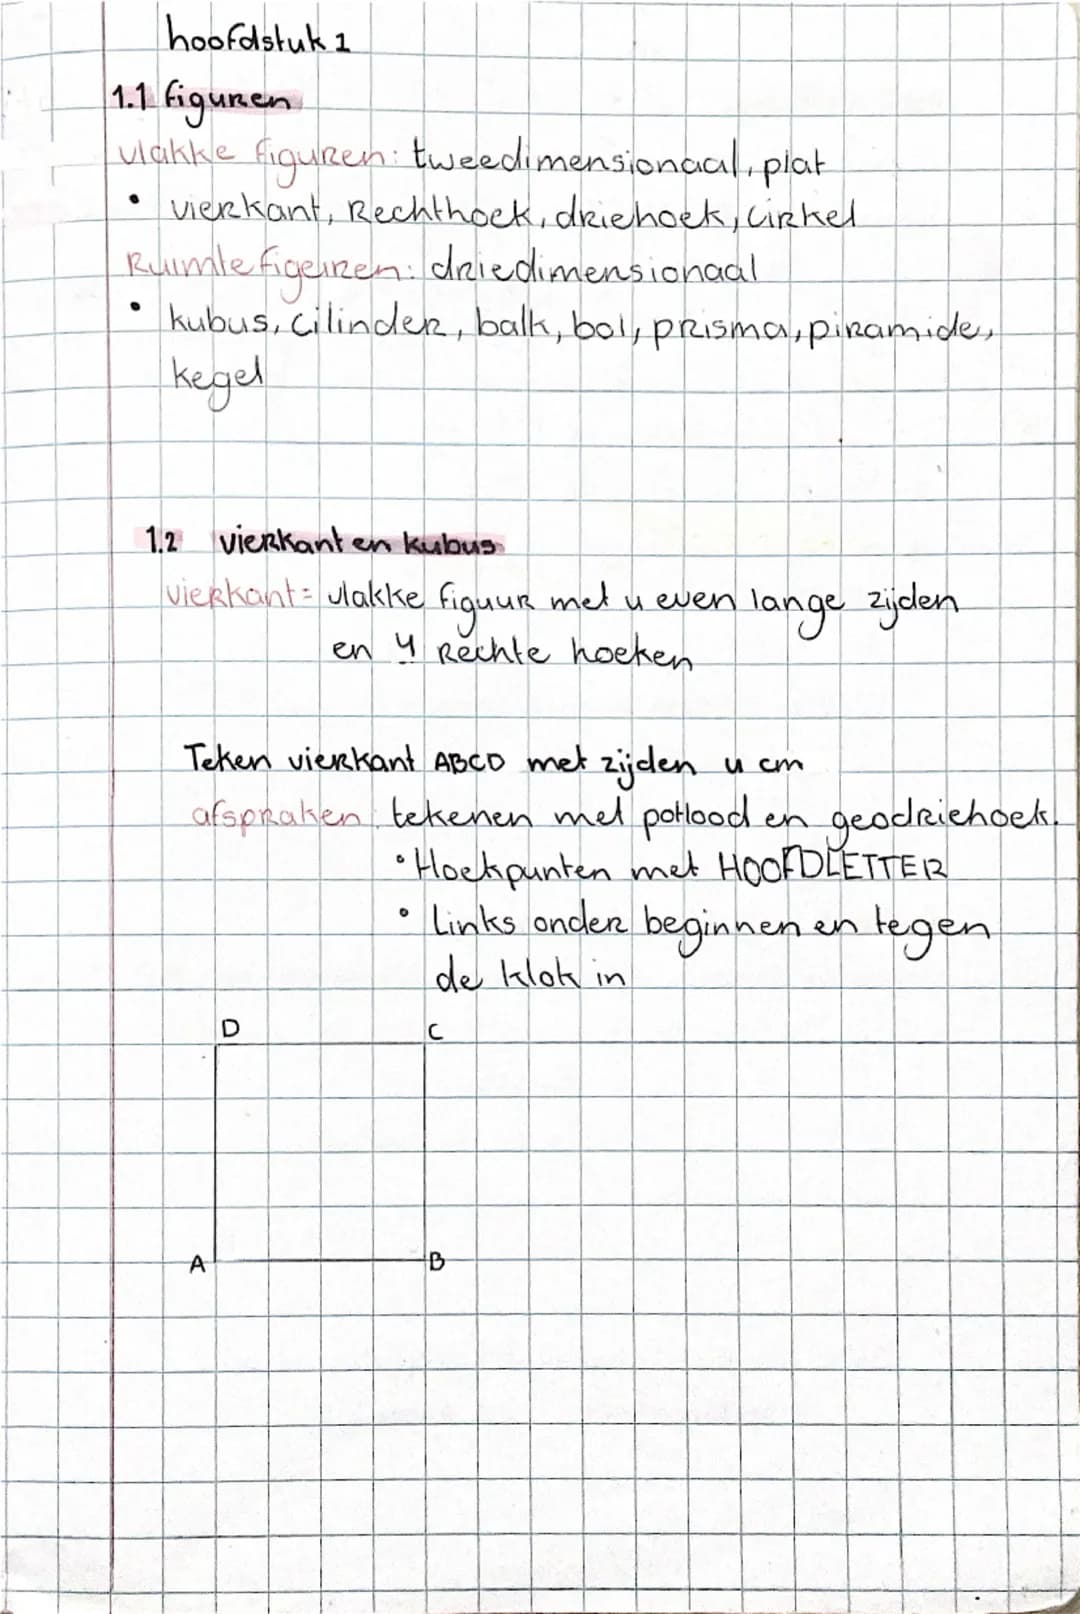 hoofdstuk 1
1.1 figuren
vlakke figuren: tweedimensionaal, plat
• vierkant, Rechthoek, driehoek, cirkel
Ruimte figeuren: driedimensionaal
• kubus, cilinder, balk, bol, prisma, piramide,
kegel
1.2 vierkant en kubus
vierkant = vlakke figuur met 4 even lange zijden
en 4 Rechte hoeken
Teken vierkant ABCD met zijden 4 cm
afspraken: tekenen met potlood en geodriehoek.
• Hoekpunten met HOOFDLETTER
• Links onder beginnen en tegen
de klok in
D C
A B